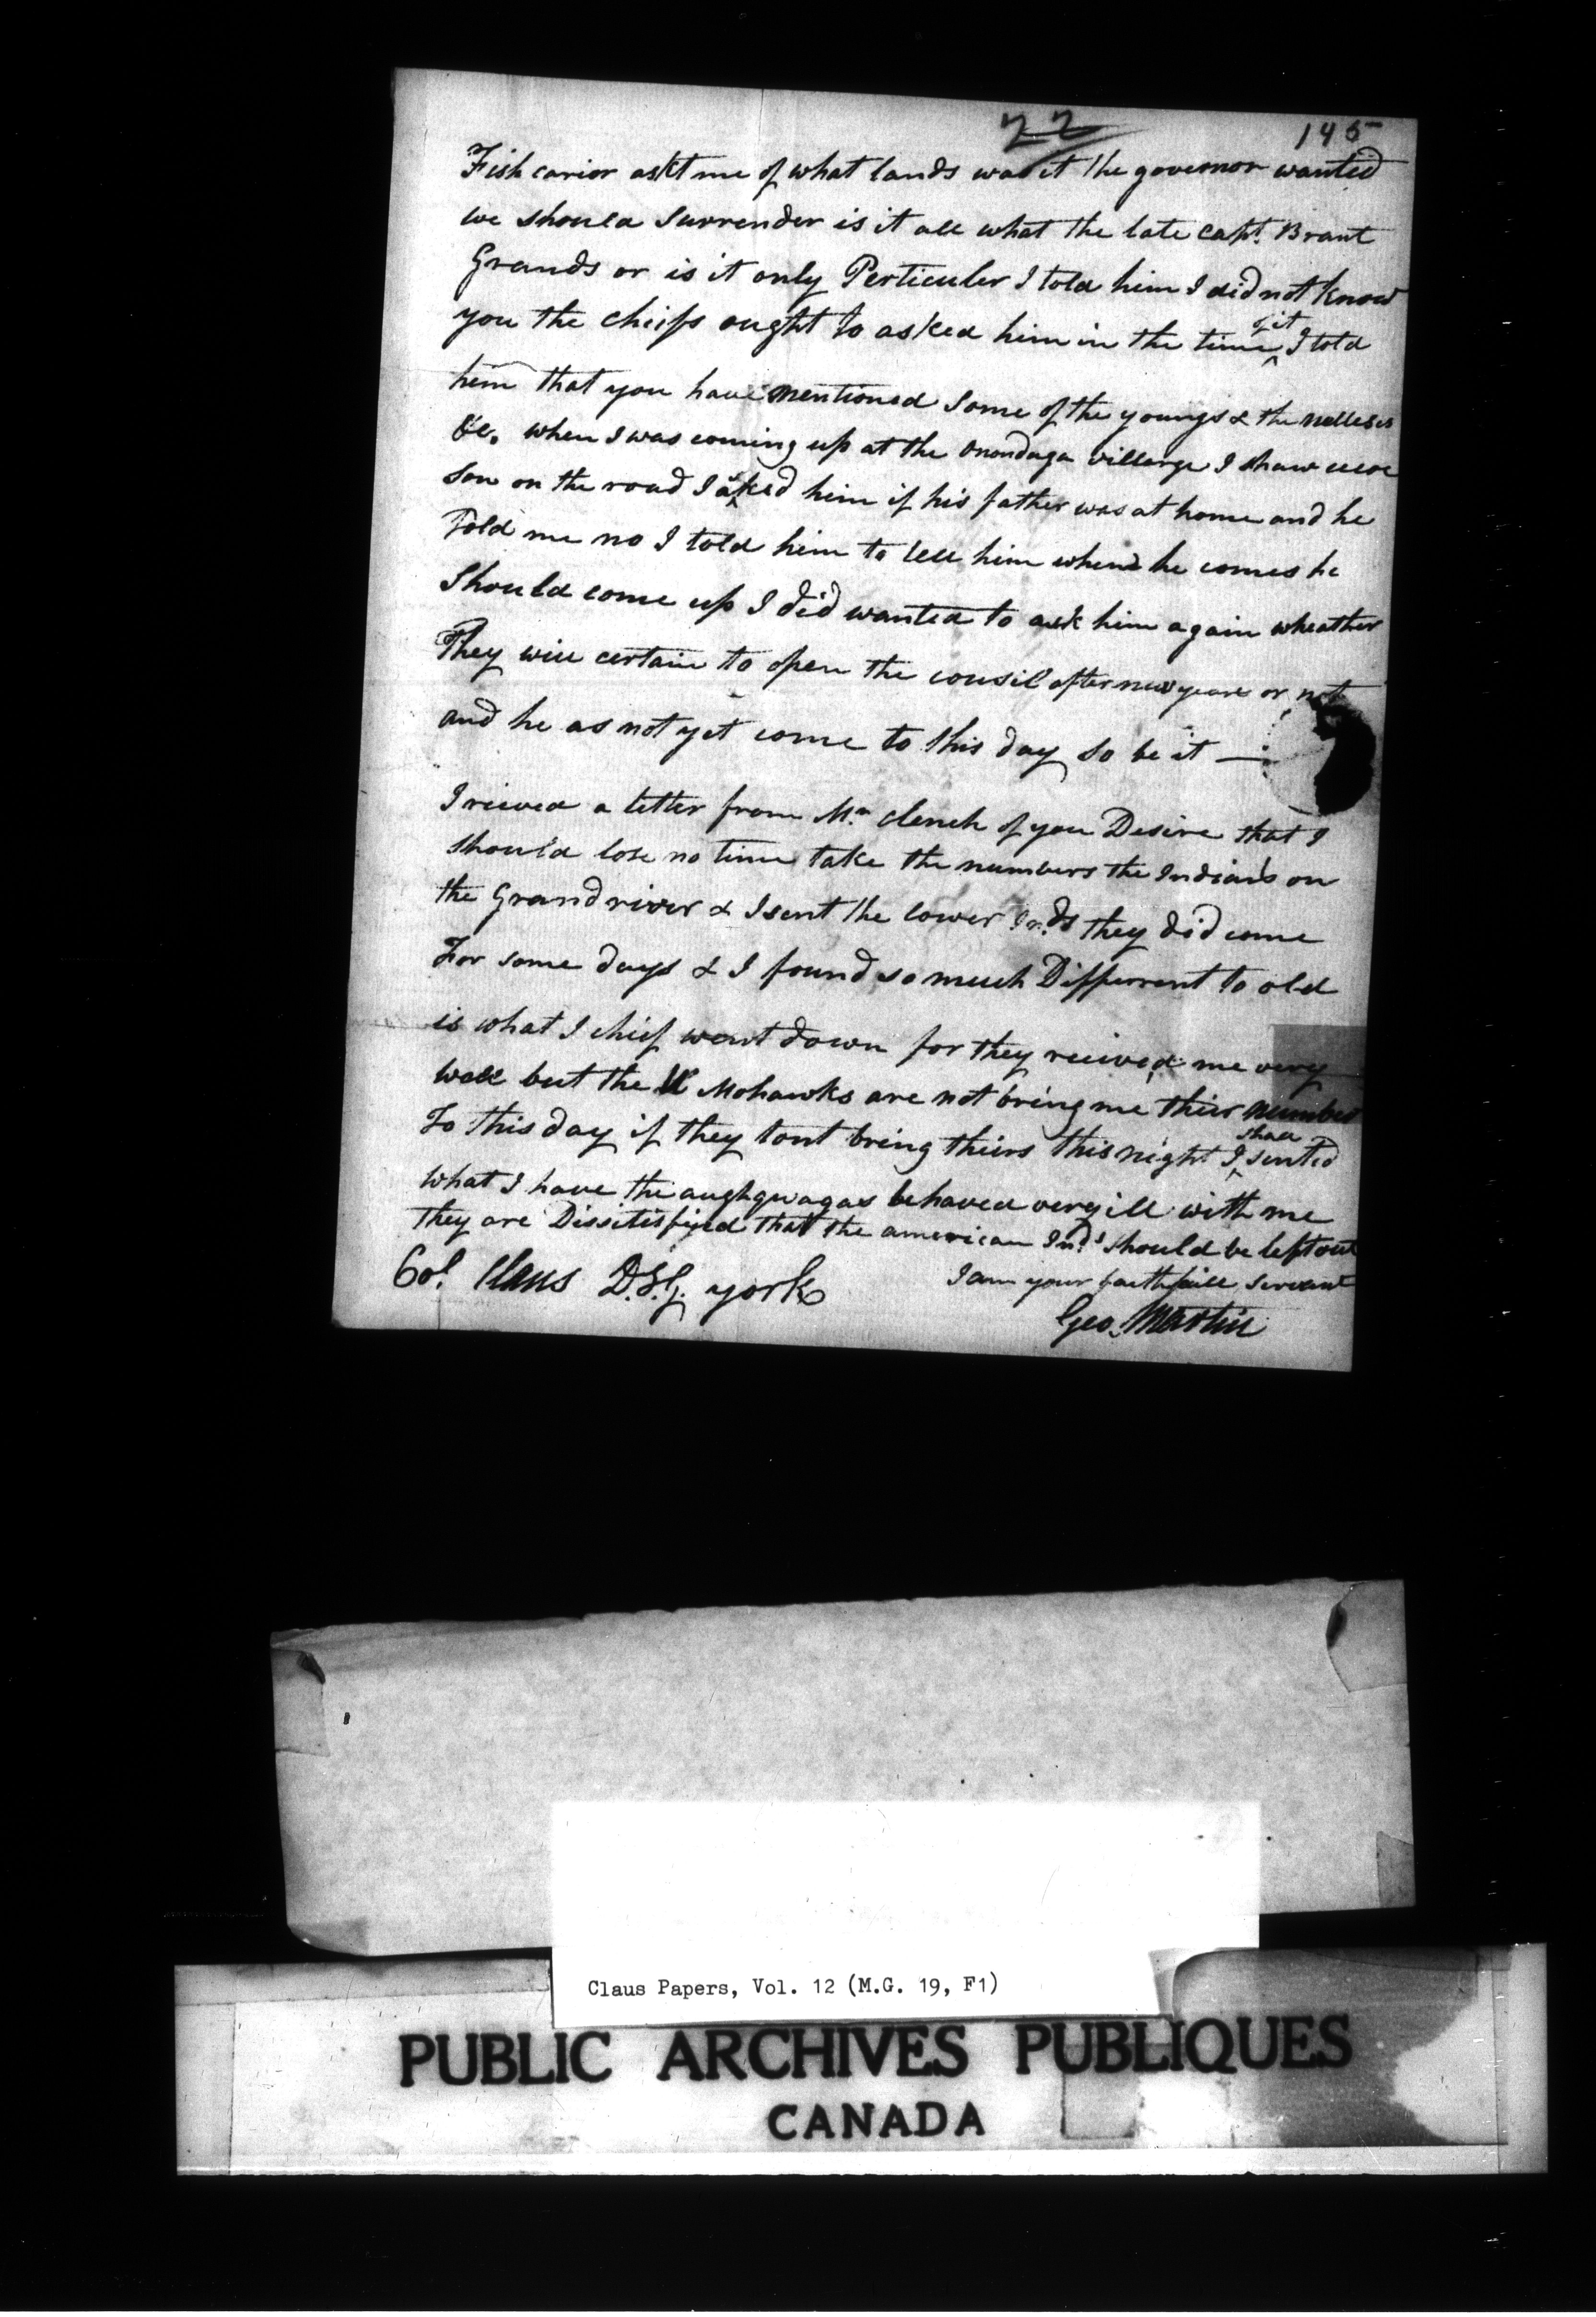 22
145
Fish carior askt me of what lands was it the governor wanted
we should surrender is it all what the late capt. Brant
Grands or is it only Perticuler I told him I did not know
you the chiefs ought to asked him in the time of it I told
him that you have mentioned some of the youngs & the nelleses
&c. when I was coming up at the onondaga villarge I shaw
son on the road I asked him if his father was at home and he
Told me no I told him to tell him when he comes he
Should come up I did wanted to ask him again wheather
They will certain to open the cousil after new years or not
and he as not yet come to this day so be it —
I reieved a letter from Mr. Clench of you Desire that I
should lose no time take the numbers the Indians on
the Grand river & I sent the lower Inds they did come
For some days & I found so much Differrent to old
is what I chief went down for they reieved me very
well but the Mohawks are not bring me thier number
To this day if they tont bring thiers this night I shall sented
what I have the aughgwagas behaved very ill with me
They are Dissitisfied that the american Inds should be left out
I am your faithfull servant
Col. Claus D.S.G. york
Geo. Martin
Claus Papers, Vol. 12 (M.G. 19, F1)
PUBLIC ARCHIVES PUBLIQUES
CANADA